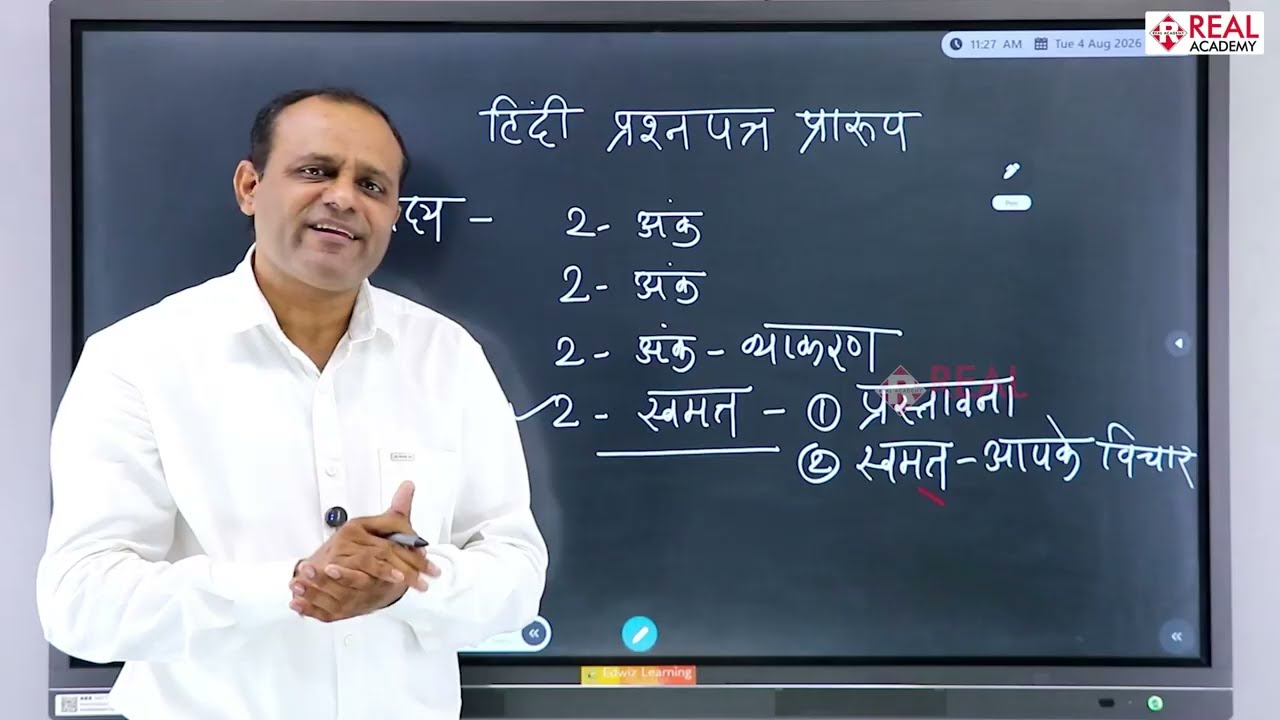 11:27 AM Tue 4 Aug 2026
REAL
ACADEMY
हिंदी प्रश्नपत्र प्रारूप
2- अंक
2- अंक
2- अंक - व्याकरण
2- स्वमत - ① प्रस्तावना
② स्वमत - आपके विचार
REAL
Edwiz Learning